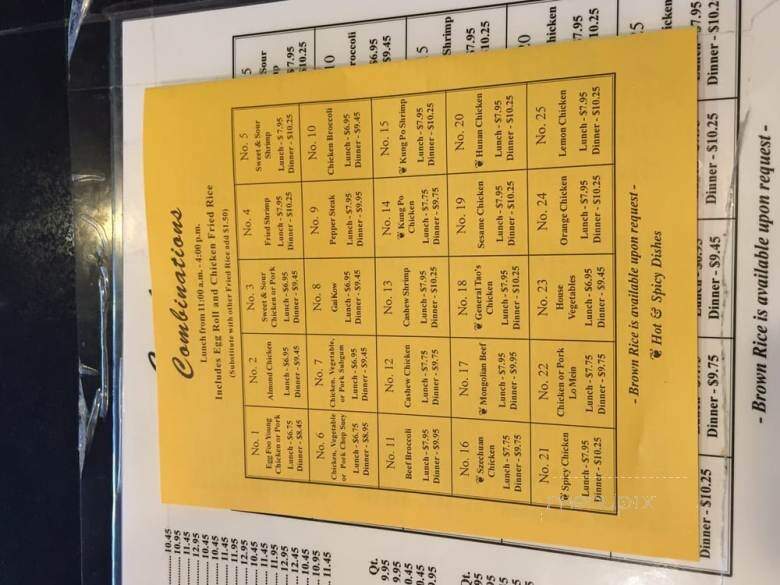 Combinations
Lunch from 11:00 a.m. - 4:00 p.m.
Includes Egg Roll and Chicken Fried Rice
(Substitute with other Fried Rice add $1.50)
No. 1
Egg Foo Young
Chicken or Pork
Lunch - $6.75
Dinner - $8.45
No. 2
Almond Chicken
Lunch - $6.95
Dinner - $9.45
No. 3
Sweet & Sour
Chicken or Pork
Lunch - $6.95
Dinner - $9.45
No. 4
Fried Shrimp
Lunch - $7.95
Dinner - $10.25
No. 5
Sweet & Sour
Shrimp
Lunch - $7.95
Dinner - $10.25
No. 6
Chicken, Vegetable
or Pork Chop Suey
Lunch - $6.75
Dinner - $8.95
No. 7
Chicken, Vegetable,
or Pork Subgum
Lunch - $6.95
Dinner - $9.45
No. 8
GaiKow
Lunch - $6.95
Dinner - $9.45
No. 9
Pepper Steak
Lunch - $7.95
Dinner - $9.95
No. 10
Chicken Broccoli
Lunch - $6.95
Dinner - $9.45
No. 11
Beef Broccoli
Lunch - $7.95
Dinner - $9.95
No. 12
Cashew Chicken
Lunch - $7.75
Dinner - $9.75
No. 13
Cashew Shrimp
Lunch - $7.95
Dinner - $10.25
No. 14
Kung Po
Chicken
Lunch - $7.75
Dinner - $9.75
No. 15
Kung Po Shrimp
Lunch - $7.95
Dinner - $10.25
No. 16
Szechuan
Chicken
Lunch - $7.75
Dinner - $9.75
No. 17
Mongolian Beef
Lunch - $7.95
Dinner - $9.95
No. 18
General Tao's
Chicken
Lunch - $7.95
Dinner - $10.25
No. 19
Sesame Chicken
Lunch - $7.95
Dinner - $10.25
No. 20
Hunan Chicken
Lunch - $7.95
Dinner - $10.25
No. 21
Spicy Chicken
Lunch - $7.95
Dinner - $10.25
No. 22
Chicken or Pork
Lo Mein
Lunch - $7.75
Dinner - $9.75
No. 23
House
Vegetables
Lunch - $6.95
Dinner - $9.45
No. 24
Orange Chicken
Lunch - $7.95
Dinner - $10.25
No. 25
Lemon Chicken
Lunch - $7.95
Dinner - $10.25
- Brown Rice is available upon request -
Hot & Spicy Dishes
Dinner - $10.25
Dinner - $9.75
Dinner - $9.45
Dinner - $10.25
Dinner - $10.2
- Brown Rice is available upon request -